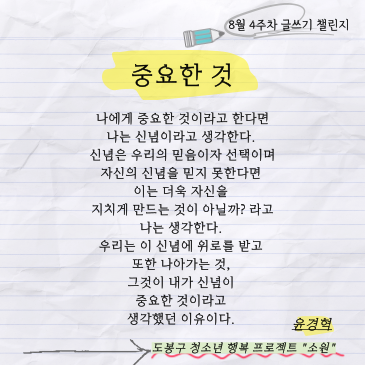 8월 4주차 글쓰기 챌린지
중요한 것
나에게 중요한 것이라고 한다면
나는 신념이라고 생각한다.
신념은 우리의 믿음이자 선택이며
자신의 신념을 믿지 못한다면
이는 더욱 자신을
지치게 만드는 것이 아닐까? 라고
나는 생각한다.
우리는 이 신념에 위로를 받고
또한 나아가는 것,
그것이 내가 신념이
중요한 것이라고
생각했던 이유이다.
윤경혁
도봉구 청소년 행복 프로젝트 "소원"